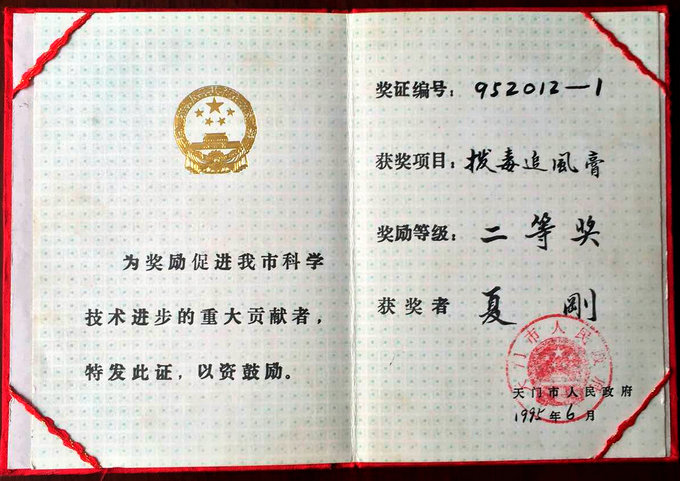 为奖励促进我市科学
技术进步的重大贡献者，
特发此证，以资鼓励。
奖证编号：952012—1
获奖项目：拨毒追風膏
奖励等级：二等奖
获奖者 夏刚
天门市人民政府
天门市人民政府
1995年6月